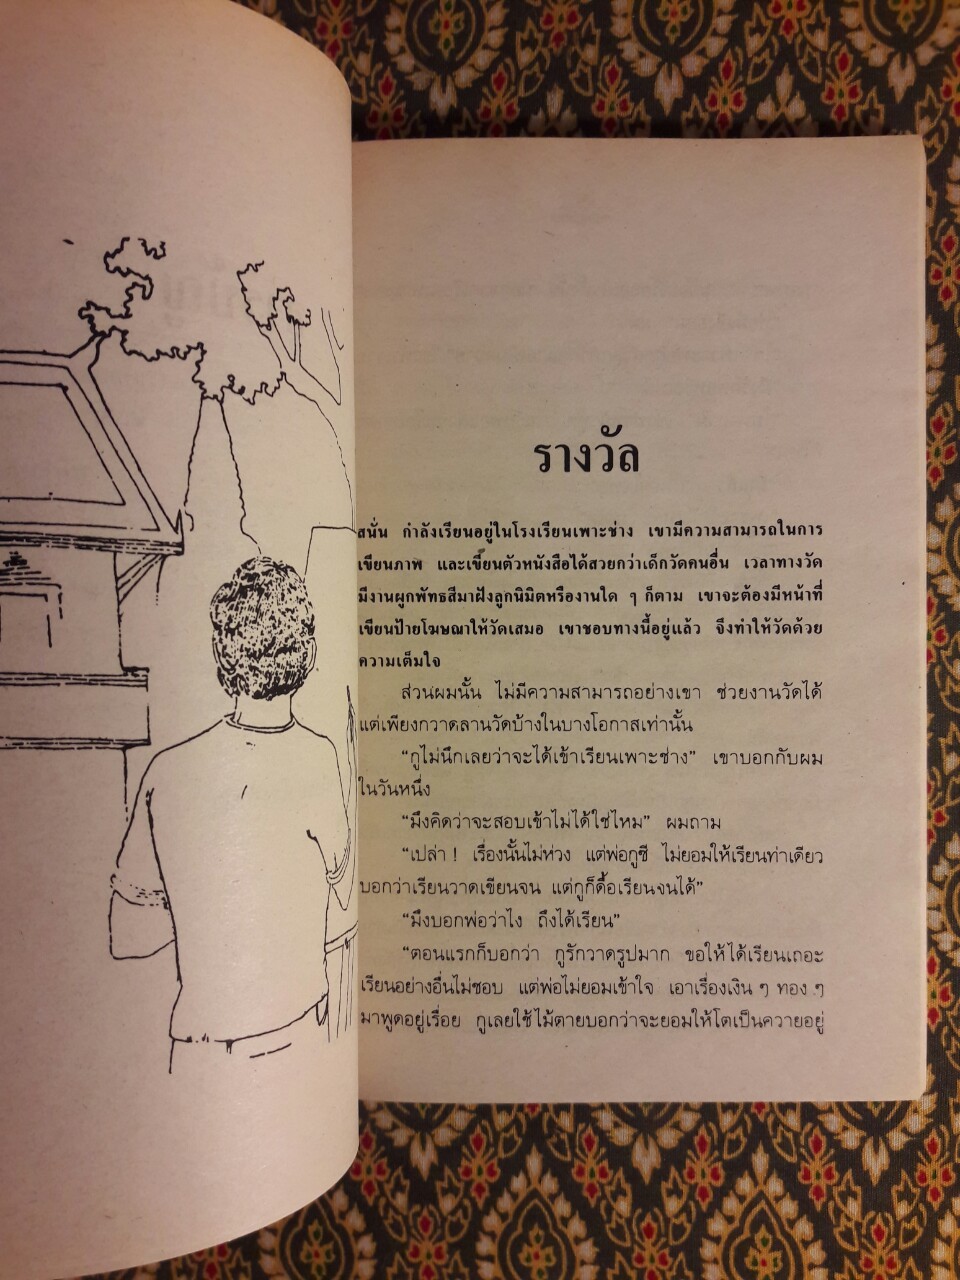 รางวัล
สนั่น กำลังเรียนอยู่ในโรงเรียนเพาะช่าง เขามีความสามารถในการ
เขียนภาพ และเขียนตัวหนังสือได้สวยกว่าเด็กวัดคนอื่น เวลาทางวัด
มีงานผูกพัทธสีมาฝังลูกนิมิตหรืองานใด ๆ ก็ตาม เขาจะต้องมีหน้าที่
เขียนป้ายโฆษณาให้วัดเสมอ เขาชอบทางนี้อยู่แล้ว จึงทำให้วัดด้วย
ความเต็มใจ
ส่วนผมนั้น ไม่มีความสามารถอย่างเขา ช่วยงานวัดได้
แต่เพียงกวาดลานวัดบ้างในบางโอกาสเท่านั้น
“กูไม่นึกเลยว่าจะได้เข้าเรียนเพาะช่าง” เขาบอกกับผม
ในวันหนึ่ง
“มึงคิดว่าจะสอบเข้าไม่ได้ใช่ไหม” ผมถาม
“เปล่า ! เรื่องนั้นไม่ห่วง แต่พ่อกูซี ไม่ยอมให้เรียนท่าเดียว
บอกว่าเรียนวาดเขียนจน แต่กูก็ดื้อเรียนจนได้”
“มึงบอกพ่อว่าไง ถึงได้เรียน”
“ตอนแรกก็บอกว่า กูรักวาดรูปมาก ขอให้ได้เรียนเถอะ
เรียนอย่างอื่นไม่ชอบ แต่พ่อไม่ยอมเข้าใจ เอาเรื่องเงิน ๆ ทอง ๆ
มาพูดอยู่เรื่อย กูเลยใช้ไม้ตายบอกว่าจะยอมให้โตเป็นควายอยู่